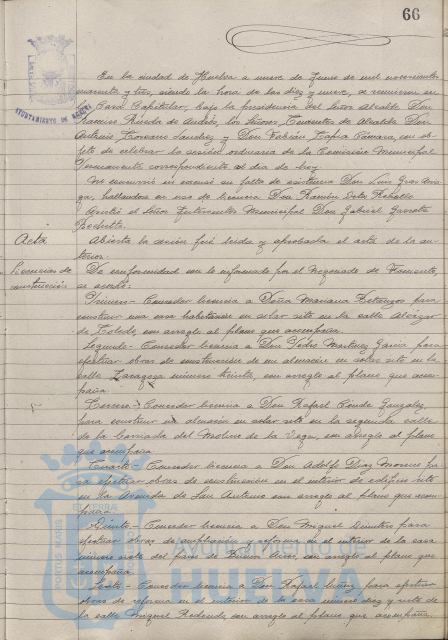 66
AYUNTAMIENTO DE HUELVA
En la ciudad de Huelva a nueve de Junio de mil novecientos
cuarenta y tres, siendo la hora de las diez y nueve, se reunieron en
la Casa Capitular, bajo la presidencia del Señor Alcalde Don
Ramiro los Señores Tenientes de Alcalde Don
Antonio Sanchez y Don Fabián Tapia Cámara, con ob-
jeto de celebrar la sesión ordinaria de la Comisión Municipal
Permanente correspondiente al día de hoy.
No concurrió en excusó su falta de asistencia Don Luis
hallándose en uso de licencia Don Ramón
Asistió el Señor Interventor Municipal Don Gabriel
Acta
Abierta la sesión fué leída y aprobada el acta de la an-
terior.
Licencias de
construcción
De conformidad con lo informado por el Negociado de Fomento,
se acordó:
Primero.- Conceder licencia a Doña Mariana para
construir una casa habitación en solar sito en la calle Alcázar
de Toledo, con arreglo al plano que acompaña.
Segundo.- Conceder licencia a Don Pedro Martinez Garcia para
efectuar obras de construcción de un almacén en solar sito en la
calle Zaragoza número treinta, con arreglo al plano que acom-
paña.
Tercero.- Conceder licencia a Don Rafael Conde Gonzalez,
para construir un almacén en solar sito en la segunda calle
de la Barriada del Molino de la Vega, con arreglo al plano
que acompaña.
Cuarto.- Conceder licencia a Don Adolfo Diaz Moreno pa-
ra efectuar obras de construcción en el interior de edificio sito
en la Avenida de San Antonio con arreglo al plano que acom-
paña.
Quinto.- Conceder licencia a Don Miguel para
efectuar obras de ampliación y reforma en el interior de la casa
número siete del paseo de Buenos Aires, con arreglo al plano que
acompaña.
Sexto.- Conceder licencia a Don Rafael para efectuar
obras de reforma en el interior de la casa número diez y siete de
la calle Miguel Redondo con arreglo al plano que acompaña.
Ayuntamiento de
HUELVA
PORTUS MARIS